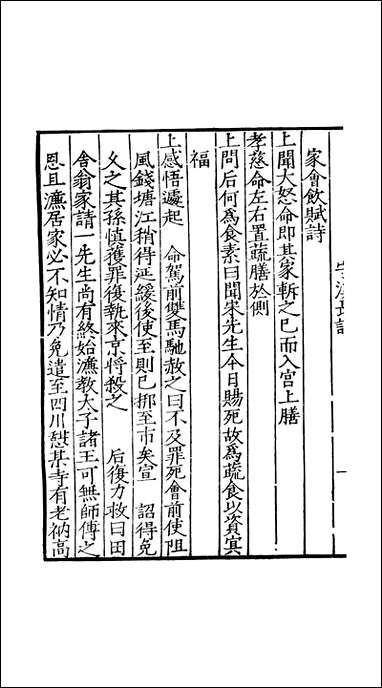 家會飲賦詩
上聞大怒命即其家斬之已而入宫上膳
孝慈命左右置蔬膳於側
上問后何爲食素曰聞宋先生今日賜死故爲蔬食以資冥
福
上感悟遽起 命駕前雙馬馳赦之曰不及罪死會前使阻
風錢塘江稍得延緩後使至則已挷至市矣宣 詔得免
久之其孫慎獲罪復執來京將殺之 后復力救曰田
舍翁家請一先生尚有終始濂教太子諸王可無師傅之
恩且濂居家必不知情乃免遣至四川憇某寺有老衲高